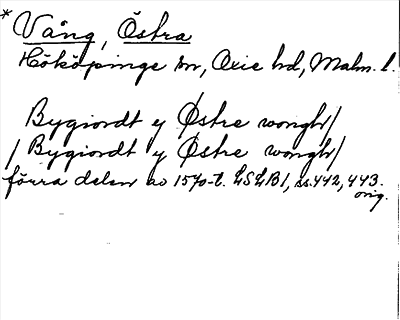 * Vång, Östra
Hököpinge sn, Oxie hd, Malm. l.
Bygiordt y Østre wongh/
/ Bygiordt y Østre wongh/
förra delen av 1570-t. LSLB1, ss. 442, 443.
orig.